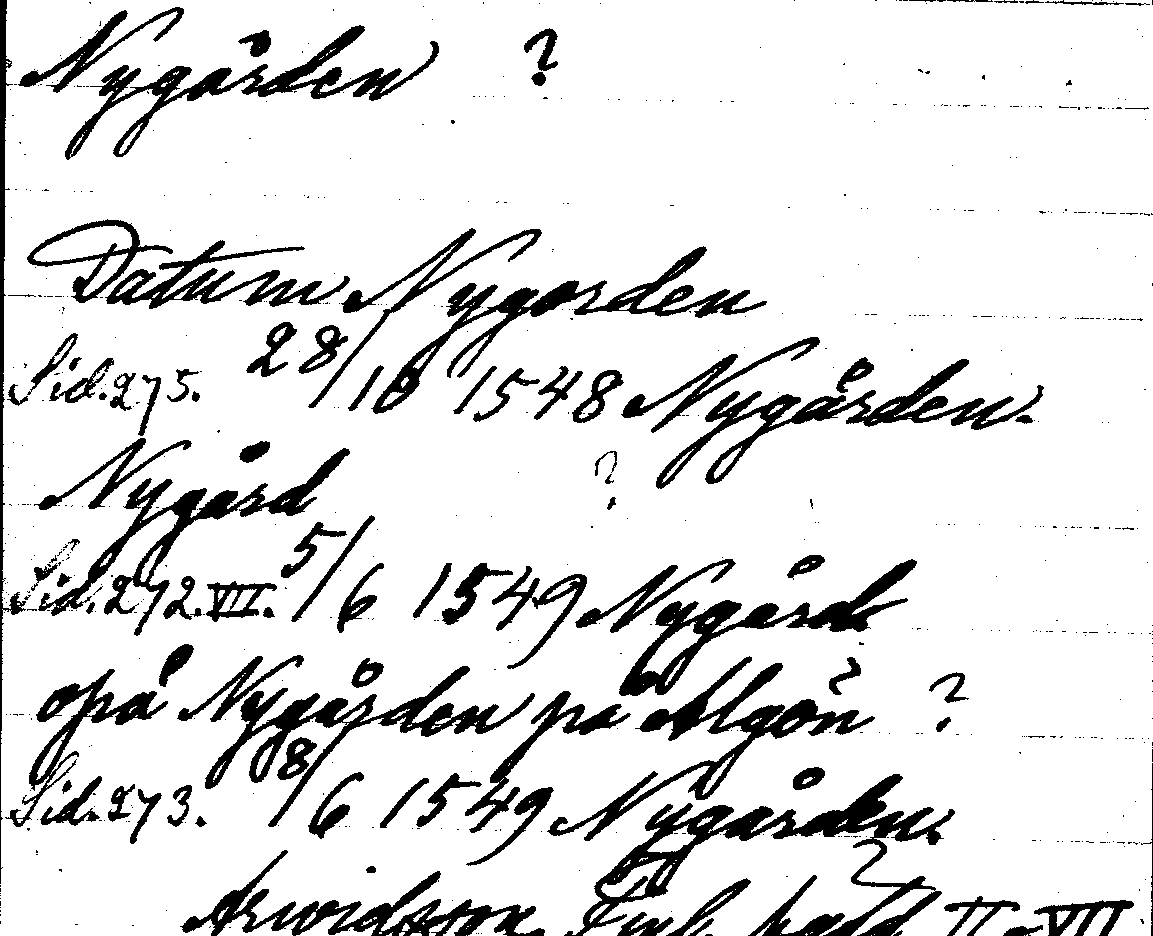 Nygården ?
Datum Nygorden
Sid. 275. 28/10 1548 Nygården.
Nygård ?
Sid. 272. VII. 5/6 1549 Nygård
opå Nygården på Algön ?
Sid. 273. 8/6 1549 Nygården.
Arwidsson, Finl. häfd II-VII